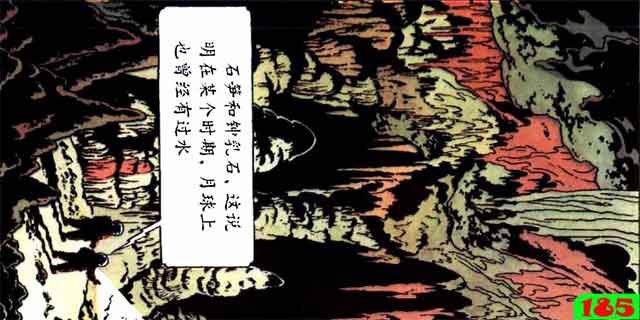 石笋和钟乳石，这说
明在某个时期，月球上
也曾经有过水
185